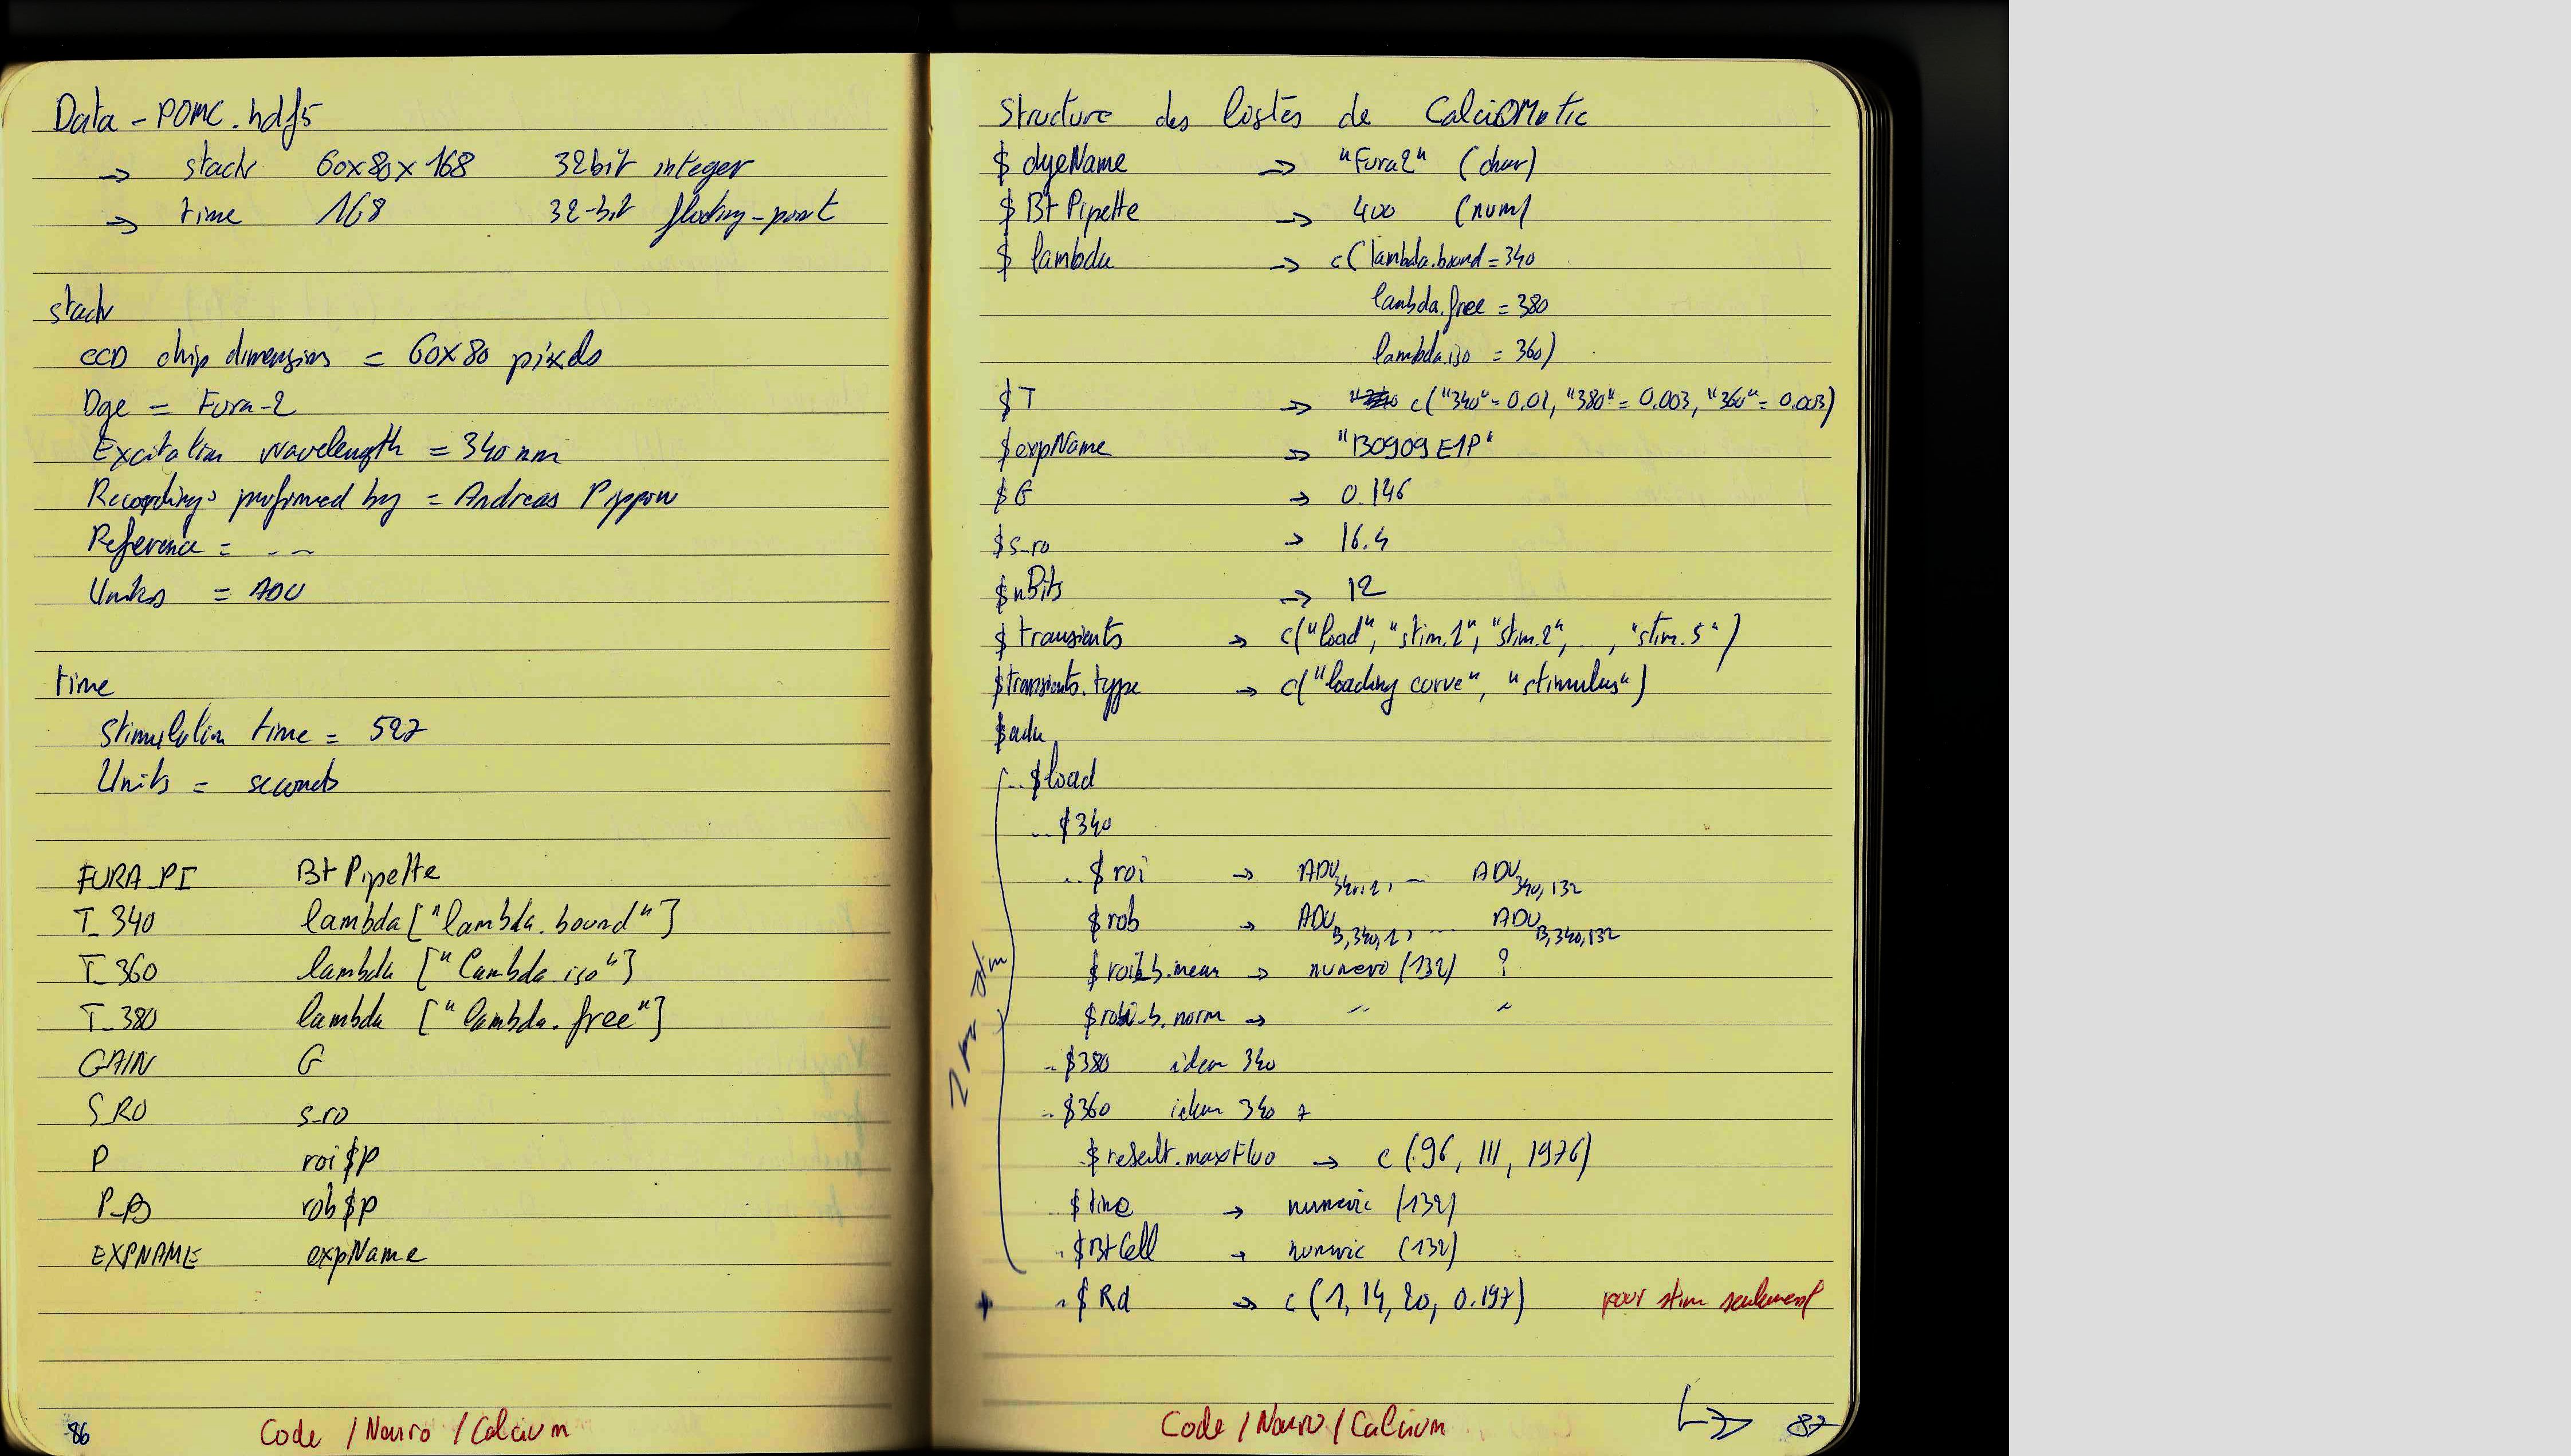 Data_POMC.hdf5
→ stack 60x80x168 32bit integer
→ time 168 32-bit floating-point
stack
CCD chip dimensions = 60x80 pixels
Dye = Fura-2
Excitation wavelength = 340 nm
Recordings performed by = Andreas Pippow
Reference = ...
Units = ADU
time
Stimulation time = 527
Units = seconds
FURA_PI Bt Pipette
T_340 lambda ["lambda.bound"]
T_360 lambda ["lambda.iso"]
T_380 lambda ["lambda.free"]
GAIN G
S_RO s_ro
P roi$P
P_B rob$P
EXPNAME expName
86 Code / Neuro / Calcium
Structure des listes de CalciOMatic
$ dyeName → "Fura2" (char)
$ Bt Pipette → 400 (num)
$ lambda → c(lambda.bound = 340
lambda.free = 380
lambda.iso = 360)
$ T → c("340" = 0.01, "380" = 0.003, "360" = 0.003)
$ expName → "B0909E1P"
$ G → 0.146
$ s_ro → 16.4
$ nBits → 12
$ transients → c("load", "stim.1", "stim.2", ..., "stim.5")
$ transients.type → c("loading curve", "stimulus")
$ adu
..$ load
..$ 340
..$ roi → ADU340,1, ... ADU340,132
$ rob → ADUB,340,1, ... ADUB,340,132
.mean → (132) ?
.norm → " "
..$ 380 idem 340
..$ 360 idem 340
.$ result.maxFluo → c(96, 111, 1976)
.$ time → numeric (132)
.$ Bt Cell → numeric (132)
+ .$ Rd → c(1, 14, 20, 0.197) pour stim seulement
stim
Code / Neuro / Calcium ↳ 87